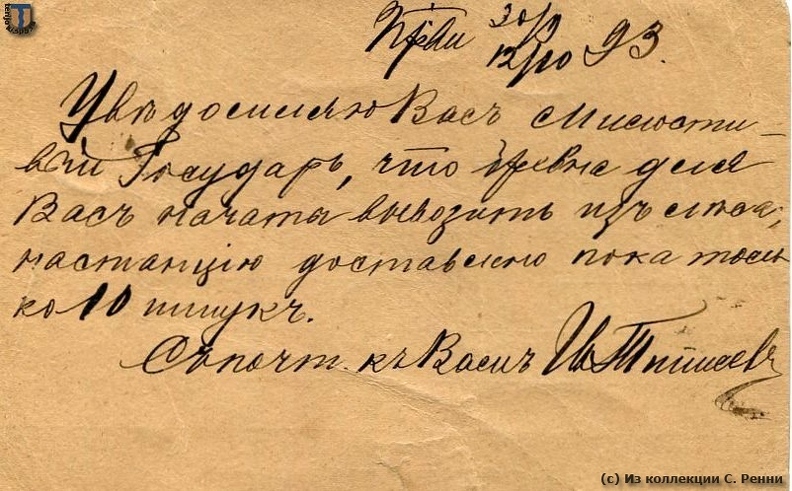 30/9
12/10 93.
Увѣдомляю Васъ Милости-
вый Государь, что бревна для
Васъ начаты вывозить изъ лѣса,
настанцію доставлено пока толь
ко 10 штукъ.
Съ почт. къ Вамъ Ив
(c) Из коллекции С. Ренни